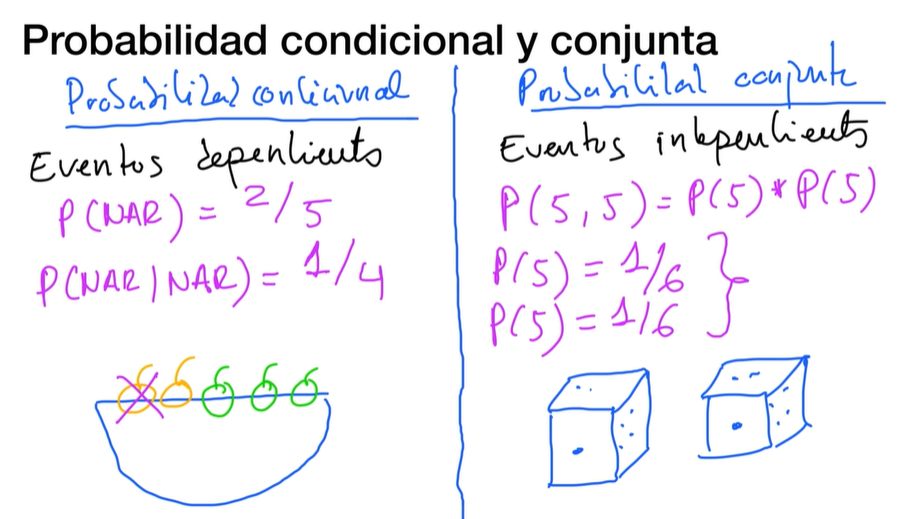 Probabilidad condicional y conjunta
Probabilidad condicional
Eventos dependientes
P(NAR) = 2/5
P(NAR|NAR) = 1/4
Probabilidad conjunta
Eventos independientes
P(5,5) = P(5)*P(5)
P(5) = 1/6
P(5) = 1/6